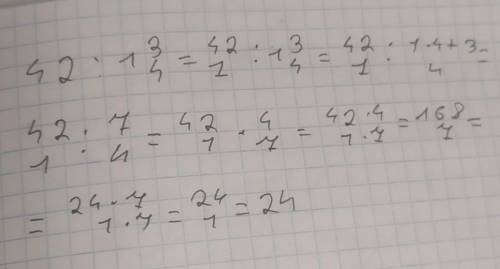 42 : 1 3/4 = 42/1 : 1 3/4 = 42/1 : 1·4+3/4 =
42/1 : 7/4 = 42/1 · 4/7 = 42·4/1·7 = 168/7 =
= 24·7/1·7 = 24/1 = 24